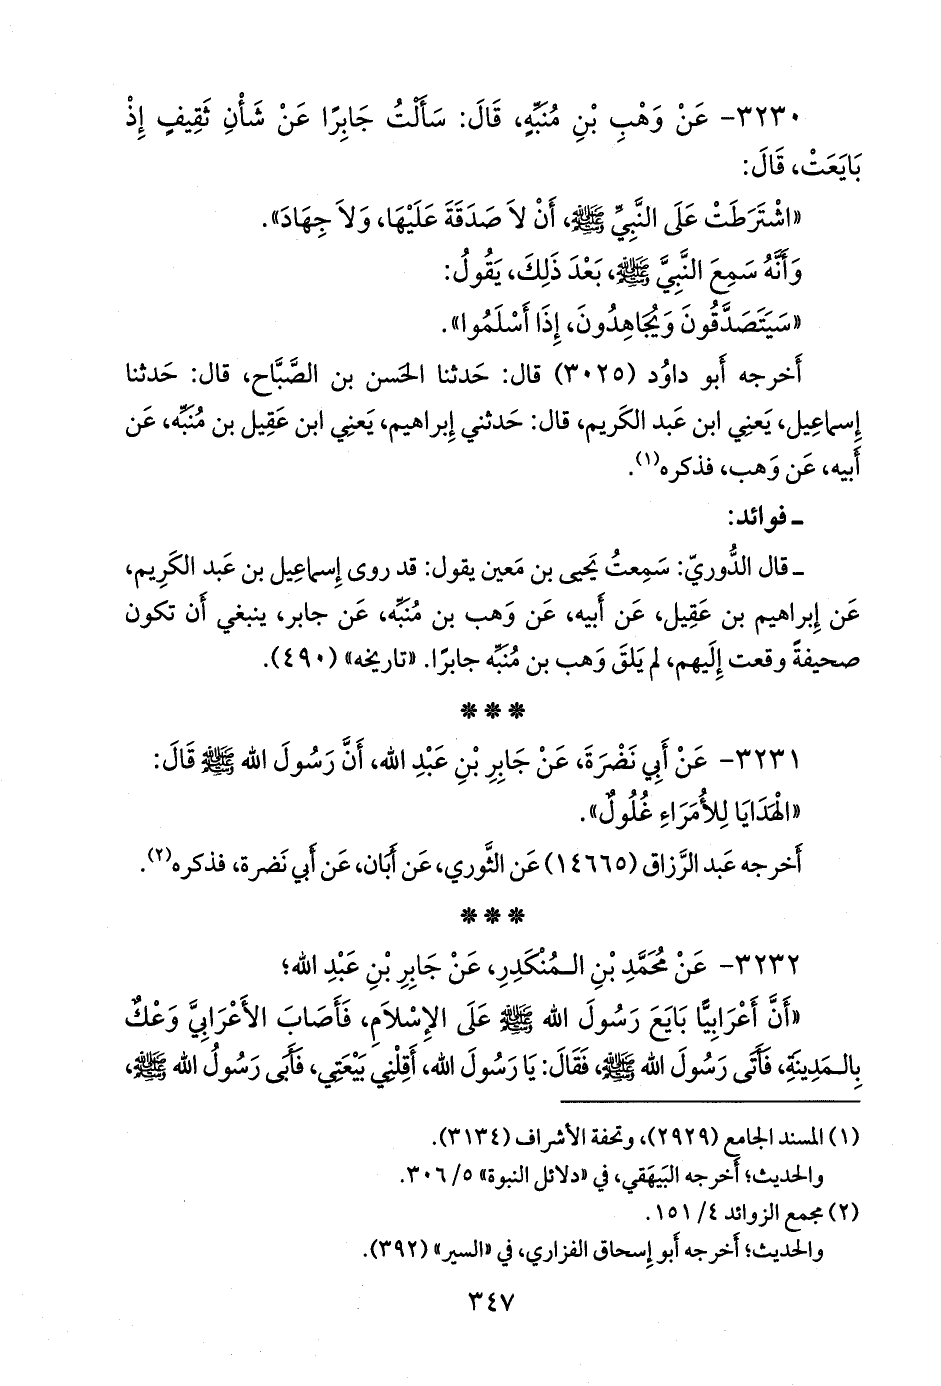 ٣٢٣٠- عَنْ وَهْبِ بْنِ مُنَبِّهٍ، قَالَ: سَأَلْتُ جَابِرًا عَنْ شَأْنِ ثَقِيفٍ إِذْ
بَايَعَتْ، قَالَ:
«اشْتَرَطَتْ عَلَى النَّبِيِّ ﷺ، أَنْ لاَ صَدَقَةَ عَلَيْهَا، وَلاَ جِهَادَ».
وَأَنَّهُ سَمِعَ النَّبِيَّ ﷺ، بَعْدَ ذَلِكَ، يَقُولُ:
«سَيَتَصَدَّقُونَ وَيُجَاهِدُونَ، إِذَا أَسْلَمُوا».
أَخرجه أَبو داوُد (٣٠٢٥) قال: حَدثنا الحَسن بن الصَّبَّاح، قال: حَدثنا
إِسماعِيل، يَعنِي ابن عَبد الكَريم، قال: حَدثني إِبراهيم، يَعنِي ابن عَقِيل بن مُنَبِّه، عَن
أَبيه، عَن وَهب، فذكره(١).
ـ فوائد:
ـ قال الدُّوريّ: سَمِعتُ يَحيى بن مَعين يقول: قد روى إِسماعِيل بن عَبد الكَرِيم،
عَن إِبراهيم بن عَقِيل، عَن أَبيه، عَن وَهب بن مُنَبِّه، عَن جابر، ينبغي أَن تكون
صحيفةً وقعت إِلَيهم، لم يَلقَ وَهب بن مُنَبِّه جابرًا. «تاريخه» (٤٩٠).
* * *
٣٢٣١- عَنْ أَبِي نَضْرَةَ، عَنْ جَابِرِ بْنِ عَبْدِ الله، أَنَّ رَسُولَ الله ﷺ قَالَ:
«الْهَدَايَا لِلأُمَرَاءِ غُلُولٌ».
أَخرجه عَبد الرَّزاق (١٤٦٦٥) عَن الثَّوري، عَن أَبَان، عَن أَبي نَضرة، فذكره(٢).
* * *
٣٢٣٢- عَنْ مُحَمَّدِ بْنِ الـمُنْكَدِرِ، عَنْ جَابِرِ بْنِ عَبْدِ الله؛
«أَنَّ أَعْرَابِيًّا بَايَعَ رَسُولَ الله ﷺ عَلَى الإِسْلاَمِ، فَأَصَابَ الأَعْرَابِيَّ وَعْكٌ
بِالـمَدِينَةِ، فَأَتَى رَسُولَ الله ﷺ، فَقَالَ: يَا رَسُولَ الله، أَقِلْنِي بَيْعَتِي، فَأَبَى رَسُولُ الله ﷺ،
(١) المسند الجامع (٢٩٢٩)، وتحفة الأشراف (٣١٣٤).
والحديث؛ أَخرجه البَيهَقي، في «دلائل النبوة» ٥/ ٣٠٦.
(٢) مجمع الزوائد ٤/ ١٥١.
والحديث؛ أَخرجه أَبو إِسحاق الفزاري، في «السير» (٣٩٢).
٣٤٧